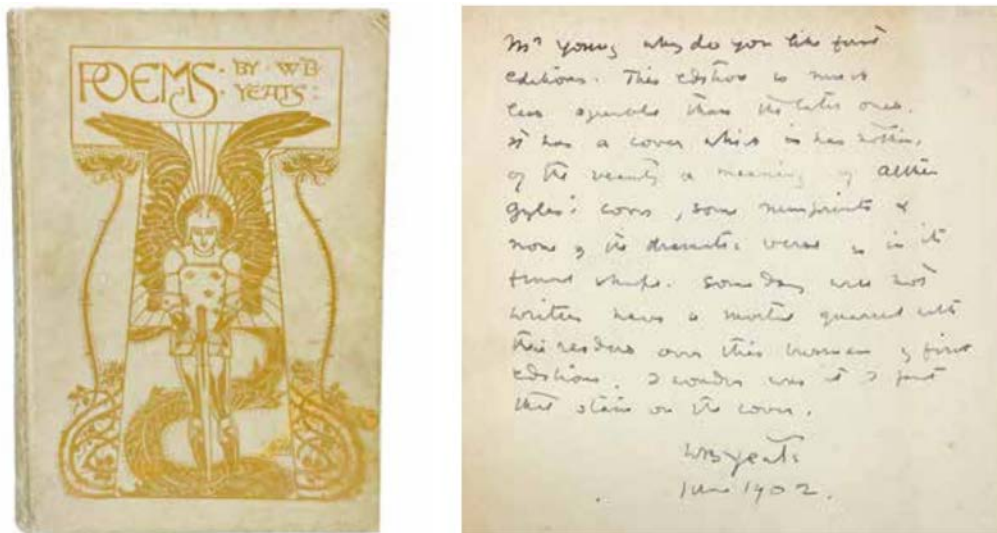 POEMS · BY · WB · YEATS :
Mr Young why do you like first
editions. This edition is much
less agreeable than the later ones.
it has a cover which is has nothing
of the beauty or meaning of Althea
Gyles' cover, some misprints &
none of its dramatic verse is in its
final shape. Some day will not
writers have a mortal quarrel with
their readers over this business of first
editions. I wonder was it I put
that stain on the cover.
WB Yeats
June 1902.